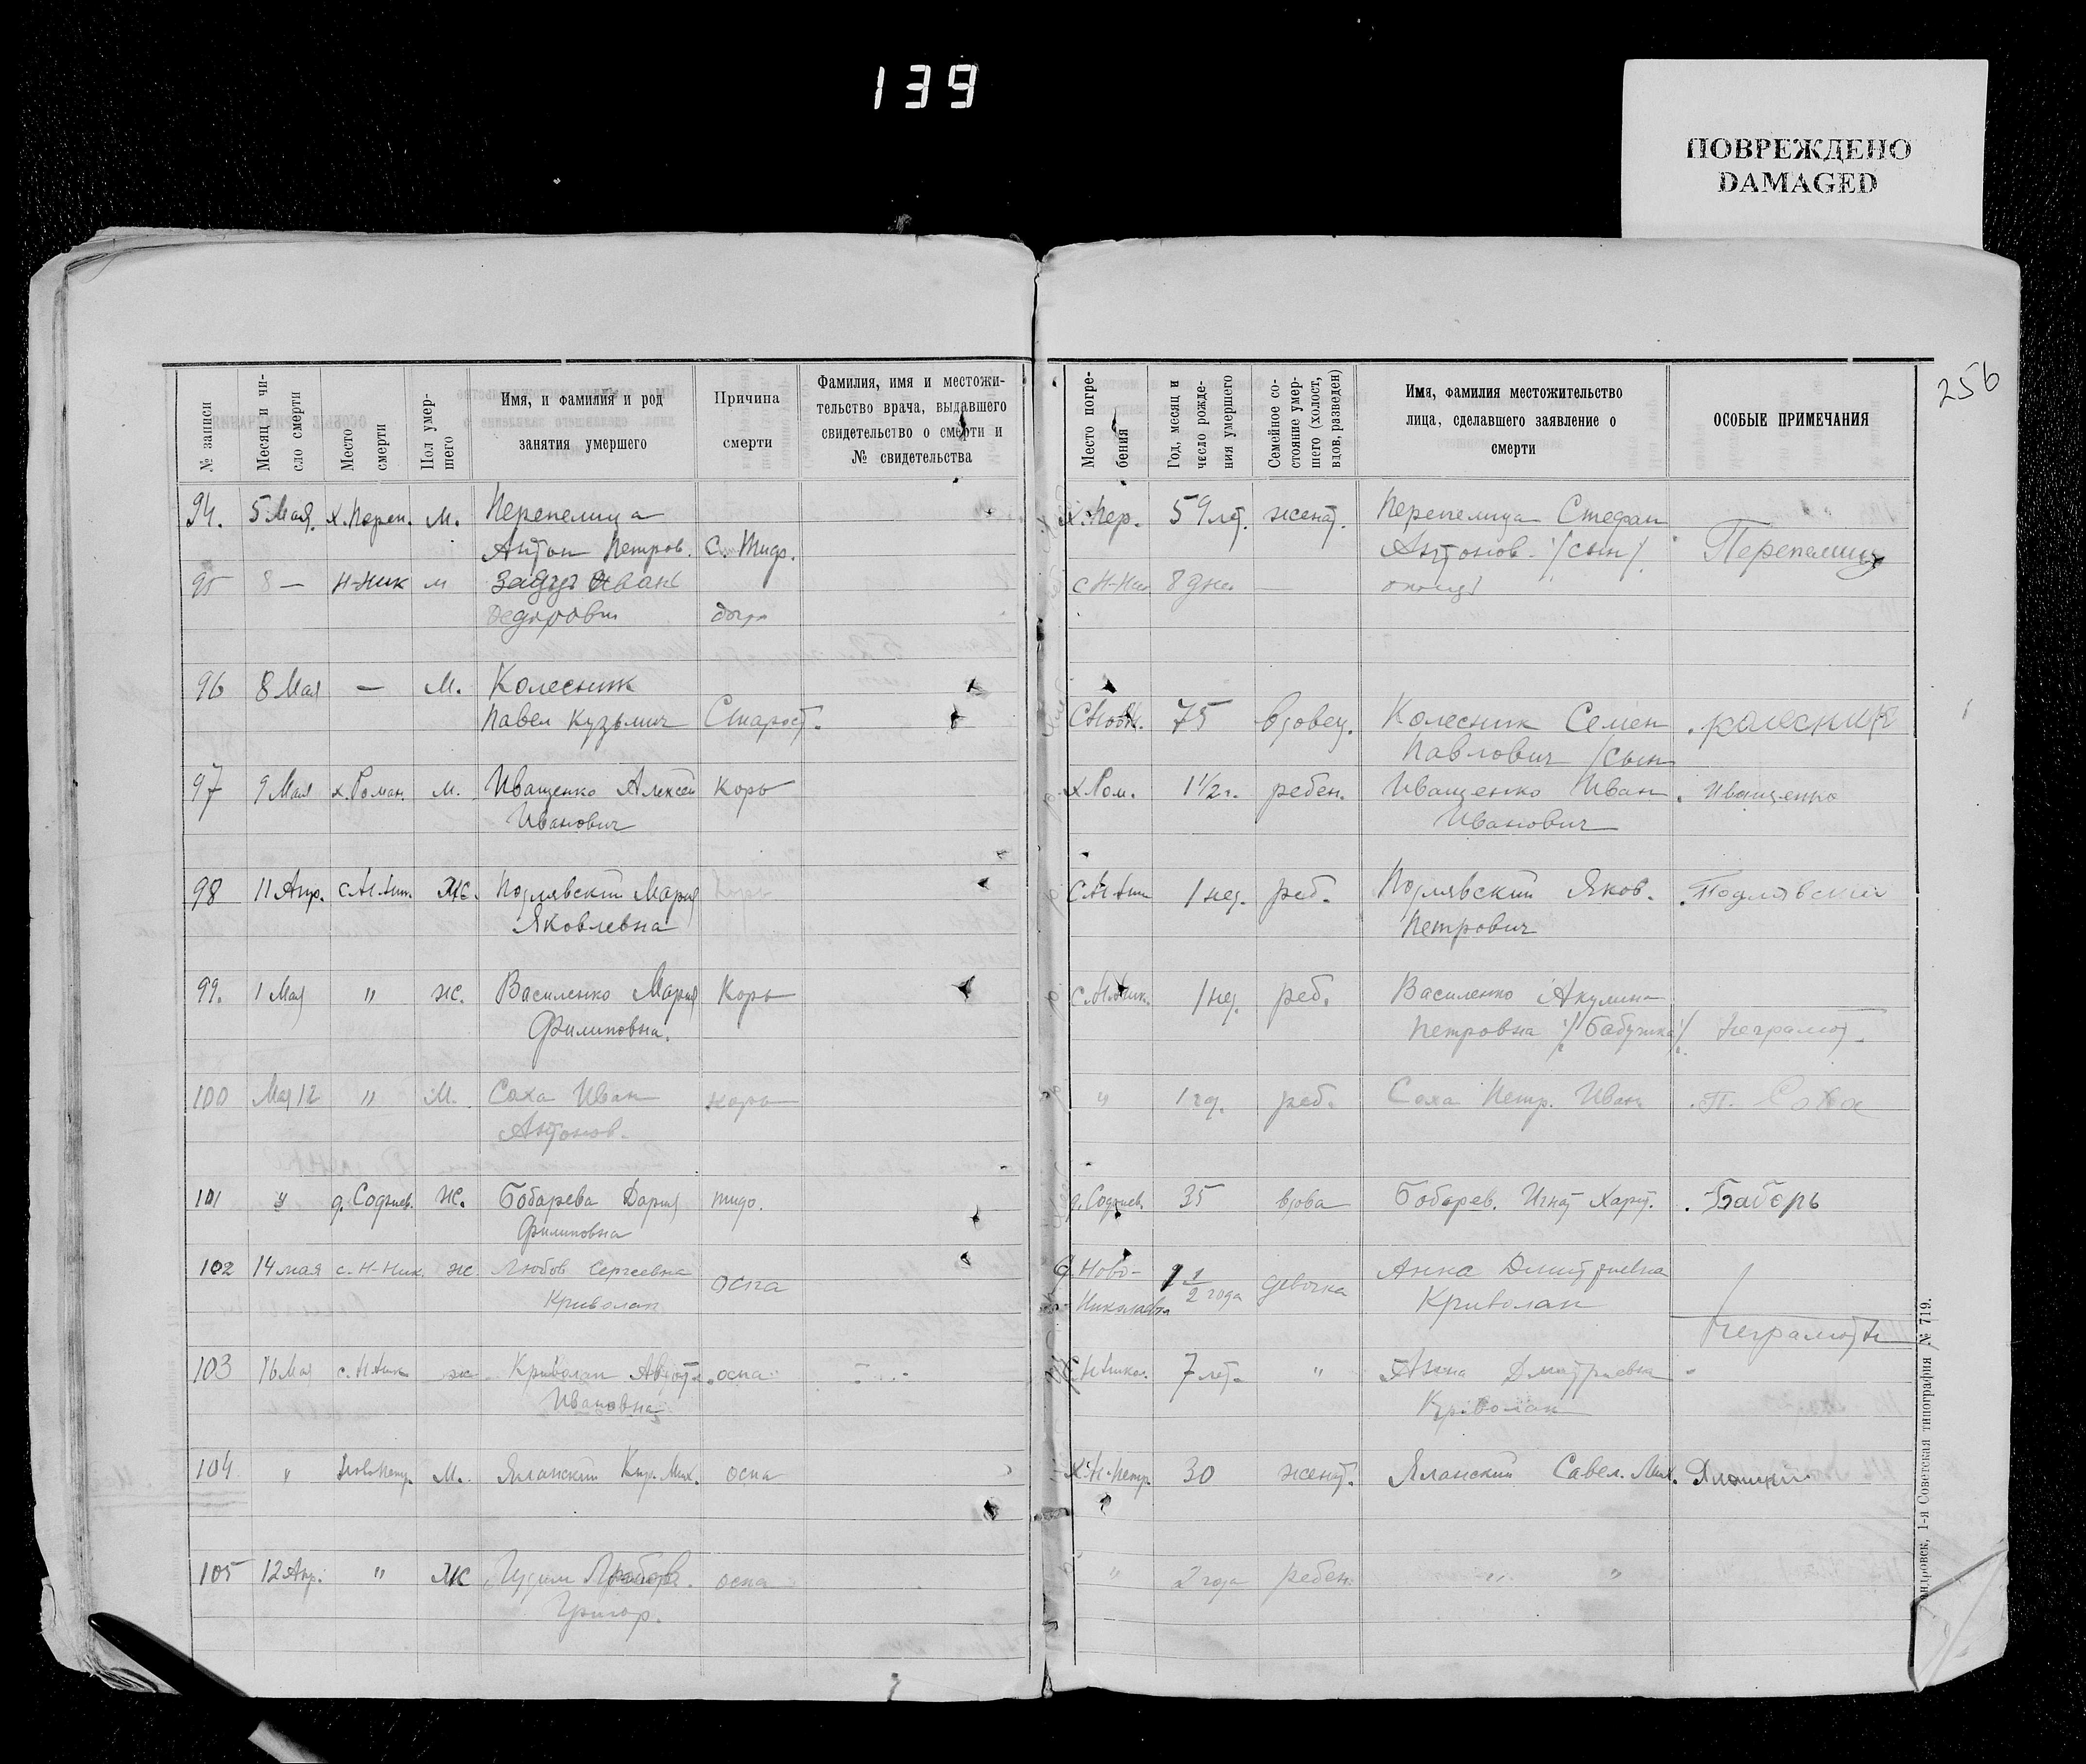 139
ПОВРЕЖДЕНО
DAMAGED
256
№ записи
Месяц и чи-
сло смерти
Место
смерти
Пол умер-
шего
Имя, и фамилия и род
занятия умершего
Причина
смерти
Фамилия, имя и местожи-
тельство врача, выдавшего
свидетельство о смерти и
№ свидетельства
Место погре-
бения
Год, месяц и
число рожде-
ния умершего
Семейное со-
стояние умер-
шего (холост,
вдов, разведен)
Имя, фамилия местожительство
лица, сделавшего заявление о
смерти
ОСОБЫЕ ПРИМЕЧАНИЯ
94. 5 Мая. х. Переп. М. Перепелица х. Пер. 59 лет. женат. Перепелица Стефан
Антон Петров. С. Тиф. Антонов. /сын/. Перепелица
95 8 — Н-Ник м Иван с Н-Ник 8 дне. — отец
Федорович
96 8 Мая — М. Колесник
Павел Кузьмич Старост. 75 вдовец. Колесник Семен . Колесник
Павлович /сын
97 9 Мая х. Роман. м. Иващенко Алексей Корь х. Ром. 1 1/2 г. ребен. Иващенко Иван . Иващенко
Иванович Иванович
98 11 Апр. с. Н. Ник. Ж. Подлявский Мария с. Н. Ник 1 нед. реб. Подлявский Яков. . Подлявский
Яковлевна Петрович
99. 1 Мая " ж. Василенко Мария Корь с. Н. Ник. 1 нед. реб. Василенко Акулина
Филиповна. Петровна /Бабушка/. Неграмот.
100 Мая 12 " М. Саха Иван корь " 1 год. реб. Саха Петр. Иван. . П. Саха
Антонов.
101 " д. Софиев. Ж. Бобарева Дария тифо. д. Софиев. 35 вдова Бобарев. Игнат Харит. . Баборь
Филиповна
102 14 мая с. Н-Ник. ж. Любов Сергеевна оспа Ново- 1 1/2 года девочка Анна Дмитриевна
Криволап Николаевка Криволап
Неграмотн
103 16 Мая с. Н Ник ж Криволап Авдот. оспа Н Никол. 7 лет. " Анна Дмитриевна "
Ивановна Криволап
104 " НовоПетр. М. Яланский Кир. Мих. оспа х. Н-Петр. 30 женат. Яланский Савел. Мих. Яланский
105 12 Апр. " Ж оспа " 2 года ребен. " "
Григор.
1-я Советская типография № 719.